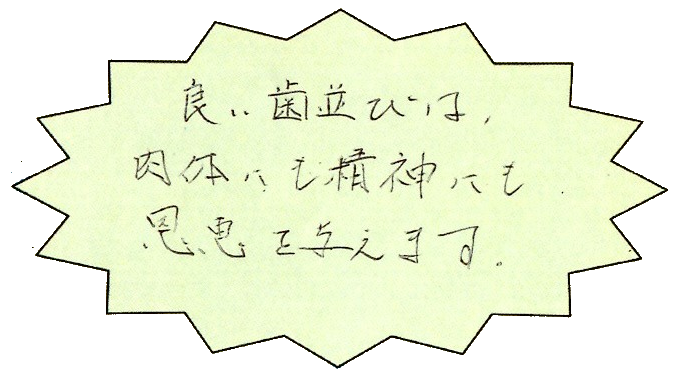 良い歯並びは、
肉体にも精神にも
恩恵を与えます。